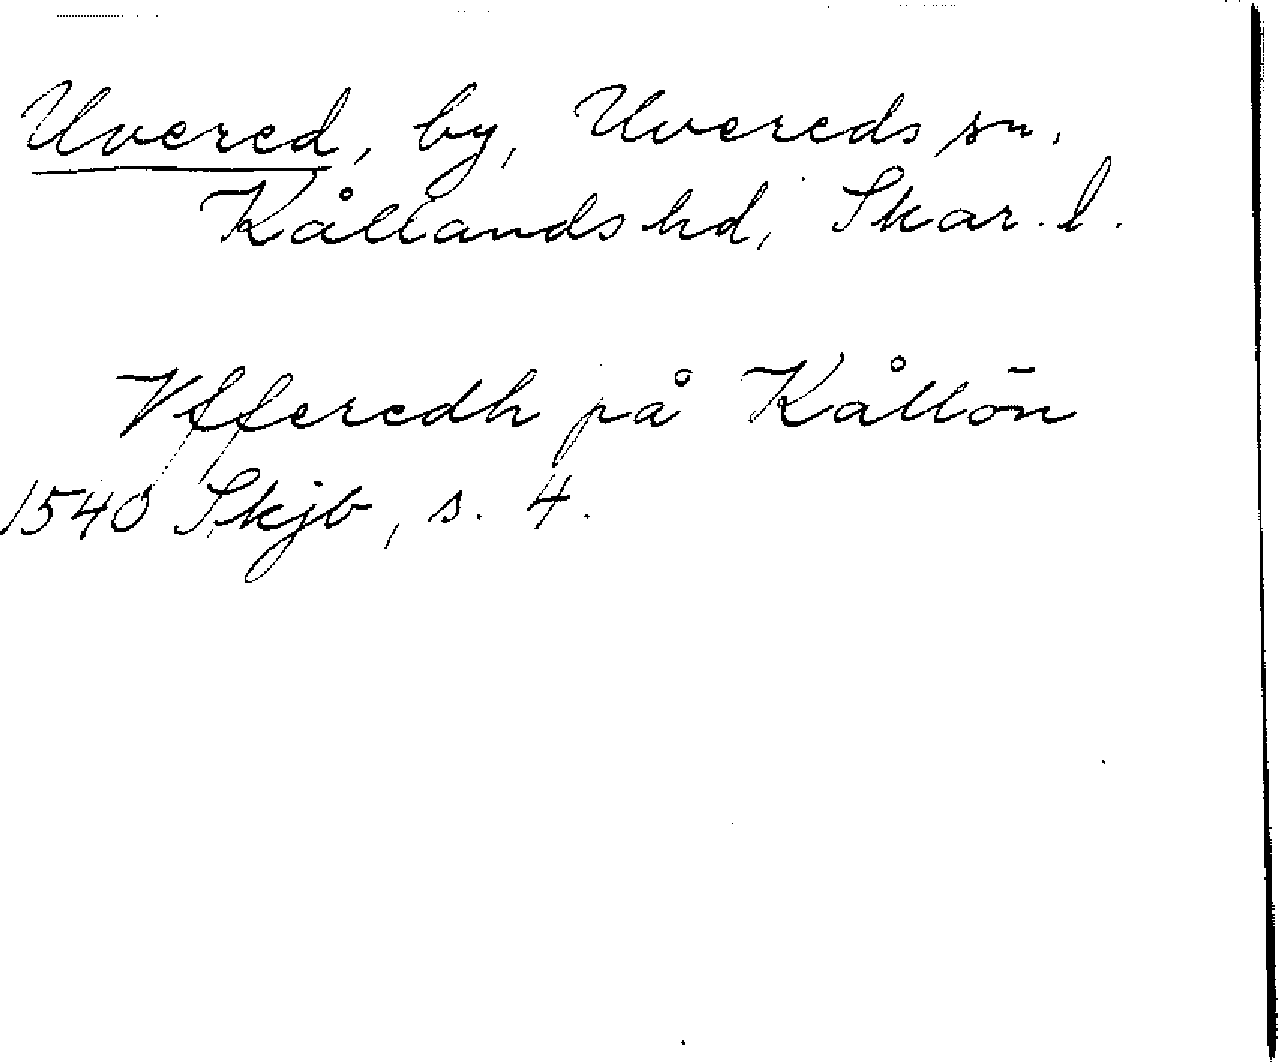 Uvered, by, Uvereds sn,
Kållands hd, Skar. l.
Vfferedh på Kållön
1540 Skjb, s. 4.